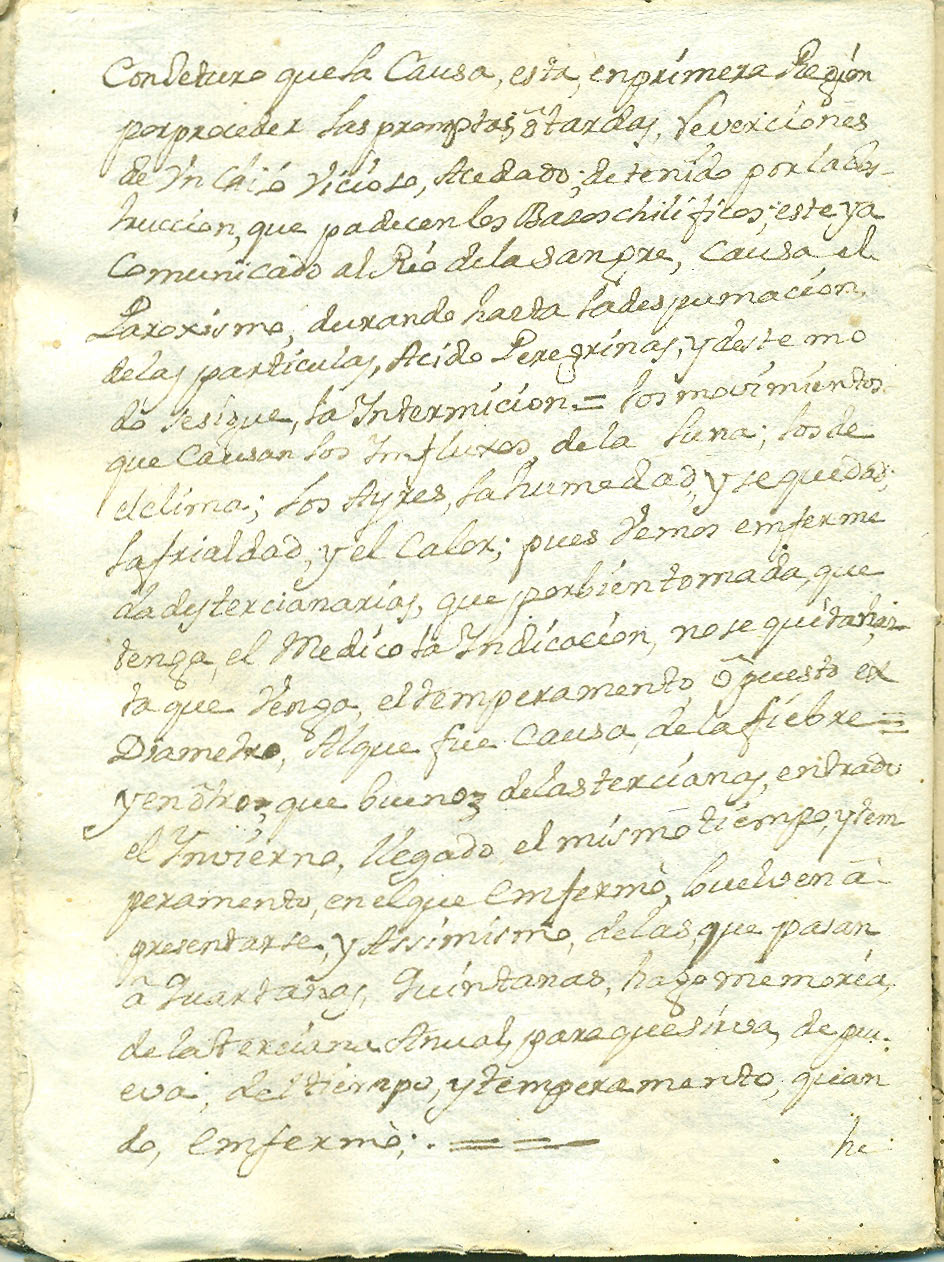 Conjeturo que la Causa, esta, en primera Región
por proceder las promptas, ò tardas, reverciones
de Vn Chilo Vicioso, Acedado; detenido por la obs-
truccion, que padecen los Basos chilíficos; este ya
Comunicado al Río de la Sangre, Causa el
Paroxismo, durando hasta la despumación,
de las particulas, Acido Peregrinas, y de este mo
do se sigue, la Intermición = los movimientos
que Causan los Influxos, de la luna; los de
el clima; los Ayres, la humedad, y sequedad;
la frialdad, y el Calor; pues Vemos enferme
dades tercianarias, que por bien tomada, que
tenga, el Medico la Yndicación, no se quitan, has-
ta que Venga, el temperamento, opuesto ex
Diametro, Al que fue Causa, de la fiebre =
y en otros, que buenos de las tercianas, entrado
el Ynvierno, llegado, el mismo tiempo, y tem
peramento, en el que enfermò, buelven â
presentarse, y Assimismo, de las, que pasan
â Quartanas, Quintanas, hago memoria,
de la terciana Anual, para que sirva, de pru-
eva, del tiempo, y temperamento, quan
do, enfermò; . = = =
he